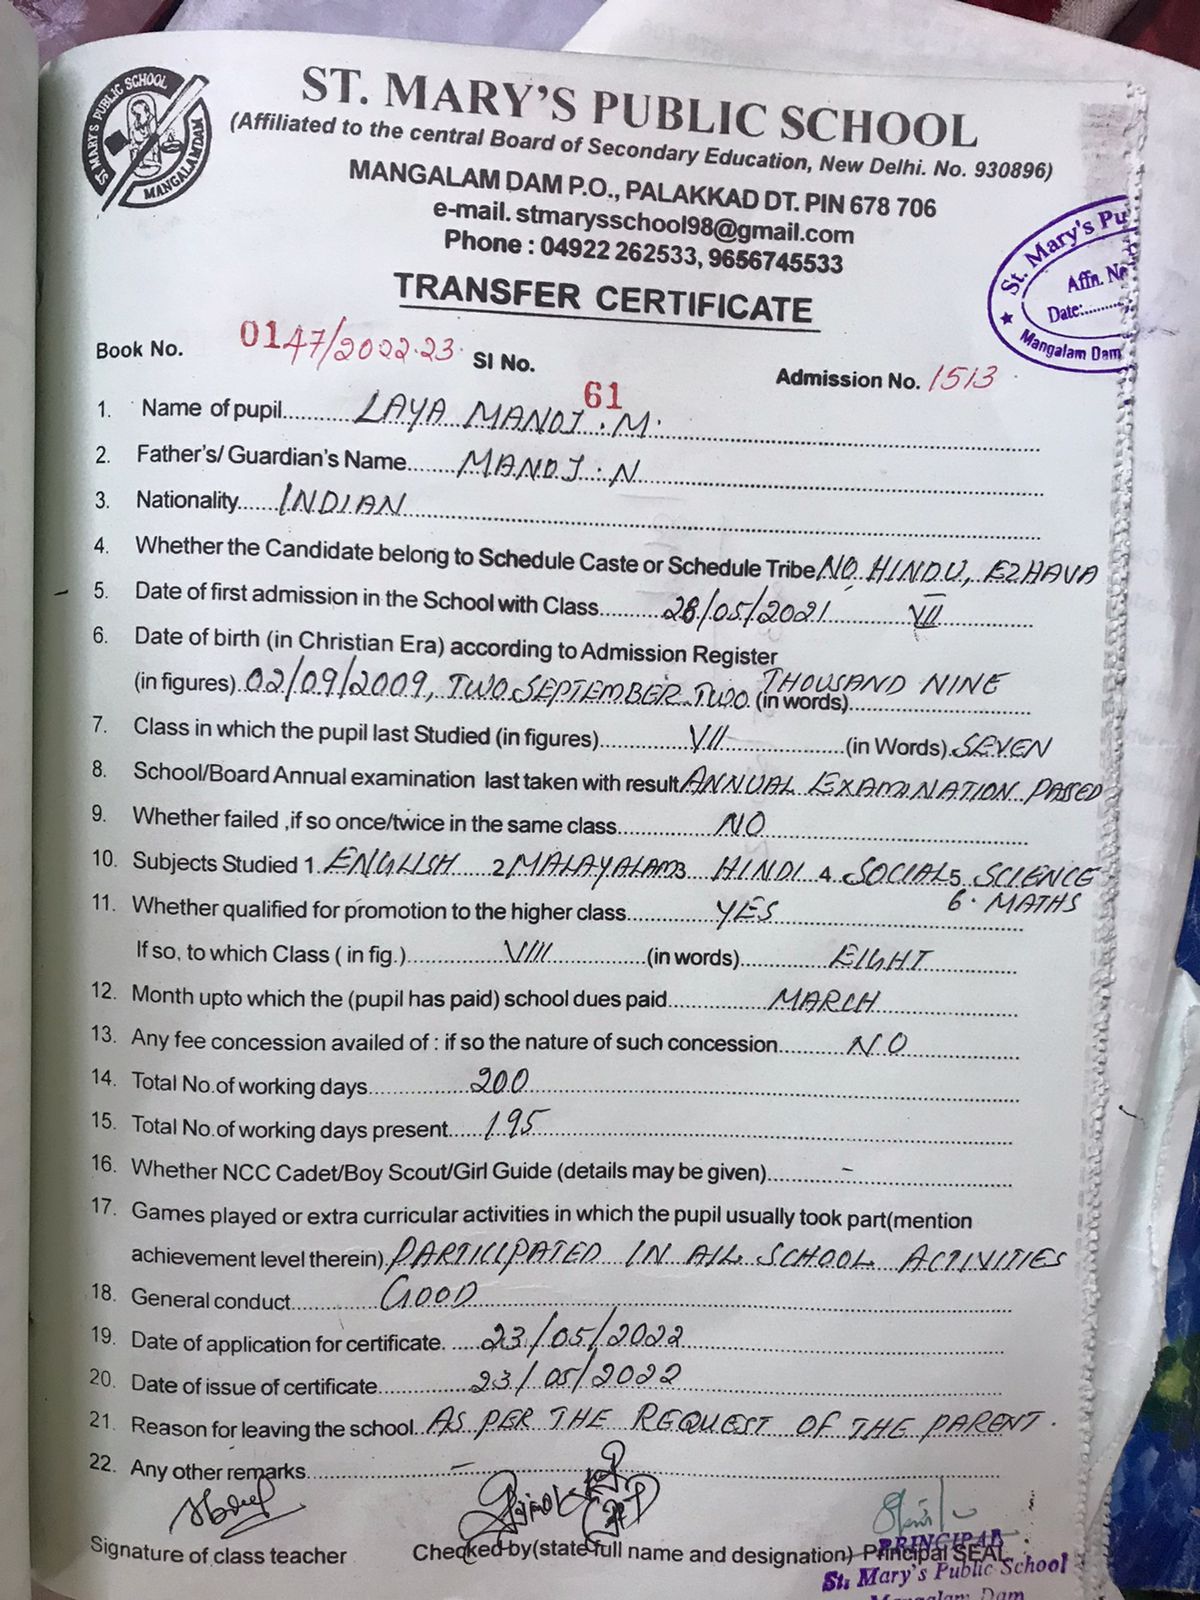 ST. MARY'S PUBLIC SCHOOL
MANGALAMDAM
ST. MARY'S PUBLIC SCHOOL
(Affiliated to the central Board of Secondary Education, New Delhi. No. 930896)
MANGALAM DAM P.O., PALAKKAD DT. PIN 678 706
e-mail. stmarysschool98@gmail.com
Phone : 04922 262533, 9656745533
St. Mary's Pu
Affn. No
Date:........
Mangalam Dam
TRANSFER CERTIFICATE
Book No. 0147/2022-23 SI No. 61 Admission No. 1513
1. Name of pupil LAYA MANOJ . M.
2. Father's/ Guardian's Name MANOJ . N
3. Nationality INDIAN
4. Whether the Candidate belong to Schedule Caste or Schedule Tribe NO HINDU, EZHAVA
5. Date of first admission in the School with Class 28/05/2021 VII
6. Date of birth (in Christian Era) according to Admission Register
(in figures) 02/09/2009, TWO SEPTEMBER TWO THOUSAND NINE (in words)
7. Class in which the pupil last Studied (in figures) VII (in Words) SEVEN
8. School/Board Annual examination last taken with result ANNUAL EXAMINATION PASSED
9. Whether failed ,if so once/twice in the same class NO
10. Subjects Studied 1. ENGLISH 2 MALAYALAM 3 HINDI 4 SOCIAL 5 SCIENCE
6. MATHS
11. Whether qualified for promotion to the higher class YES
If so, to which Class ( in fig.) VIII (in words) EIGHT
12. Month upto which the (pupil has paid) school dues paid MARCH
13. Any fee concession availed of : if so the nature of such concession NO
14. Total No.of working days 200
15. Total No.of working days present 195
16. Whether NCC Cadet/Boy Scout/Girl Guide (details may be given) -
17. Games played or extra curricular activities in which the pupil usually took part(mention
achievement level therein) PARTICIPATED IN ALL SCHOOL ACTIVITIES
18. General conduct GOOD
19. Date of application for certificate. 23/05/2022
20. Date of issue of certificate 23/05/2022
21. Reason for leaving the school AS PER THE REQUEST OF THE PARENT.
22. Any other remarks -
Signature of class teacher Checked by(state full name and designation) Principal SEAL
PRINCIPAL
St. Mary's Public School
Mangalam Dam